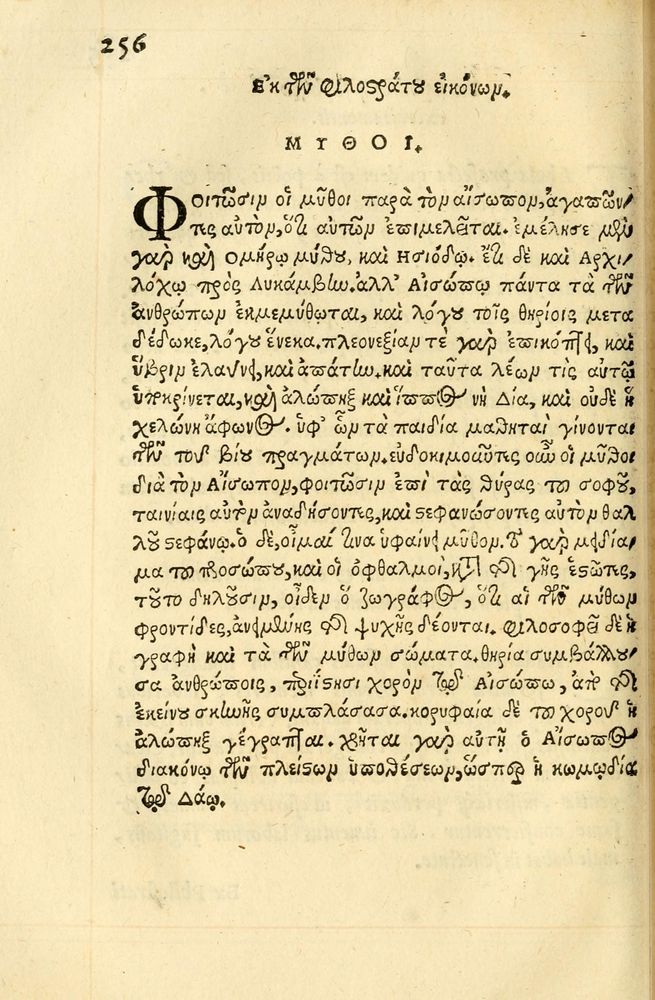 256
Ἐκ τῶν Φιλοστράτου εἰκόνων.
ΜΥΘΟΙ.
Φοιτῶσιν οἱ μῦθοι παρὰ τὸν αἴσωπον, ἀγαπῶν-
τες αὐτὸν, ὅτι αὐτῶν ἐπιμελεῖται. ἐμέλησε μὲν
γὰρ καὶ Ὁμήρῳ μύθου, καὶ Ἡσιόδῳ. ἔτι δὲ καὶ Ἀρχι-
λόχῳ πρὸς Λυκάμβην. ἀλλ' Αἰσώπῳ πάντα τὰ τῶν
ἀνθρώπων ἐκμεμύθωται, καὶ λόγου τοῖς θηρίοις μετα
δέδωκε, λόγου ἕνεκα. πλεονεξίαν τε γὰρ ἐπικόπτει, καὶ
ὕβριν ἐλαύνει, καὶ ἀπάτην. καὶ ταῦτα λέων τις αὐτῷ
ὑποκρίνεται, καὶ ἀλώπηξ καὶ ἵππος νὴ Δία, καὶ οὐδὲ ἡ
χελώνη ἄφωνος. ὑφ' ὧν τὰ παιδία μαθηταὶ γίνονται
τῶν τοῦ βίου πραγμάτων. εὐδοκιμοῦντες οὖν οἱ μῦθοι
διὰ τὸν Αἴσωπον, φοιτῶσιν ἐπὶ τὰς θύρας τοῦ σοφοῦ,
ταινίαις αὐτὸν ἀναδήσοντες, καὶ στεφανώσοντες αὐτὸν θαλ
λοῦ στεφάνῳ. ὁ δὲ, οἶμαί τινα ὑφαίνει μῦθον. τὸ γὰρ μειδία-
μα τοῦ προσώπου, καὶ οἱ ὀφθαλμοὶ, κατὰ τῆς γῆς ἑστῶτες,
τοῦτο δηλοῦσιν, οἶδεν ὁ ζωγράφος, ὅτι αἱ τῶν μύθων
φροντίδες, ἀνειμένης τῆς ψυχῆς δέονται. φιλοσοφεῖ δὲ ἡ
γραφὴ καὶ τὰ τῶν μύθων σώματα. θηρία συμβάλλου-
σα ἀνθρώποις, περιΐστησι χορὸν τῷ Αἰσώπῳ, ἀπὸ τῆς
ἐκείνου σκηνῆς συμπλάσασα. κορυφαία δὲ τοῦ χοροῦ ἡ
ἀλώπηξ γέγραπται. χρῆται γὰρ αὐτῇ ὁ Αἴσωπος
διακόνῳ τῶν πλείστων ὑποθέσεων, ὥσπερ ἡ κωμῳδία
τῷ Δάῳ.